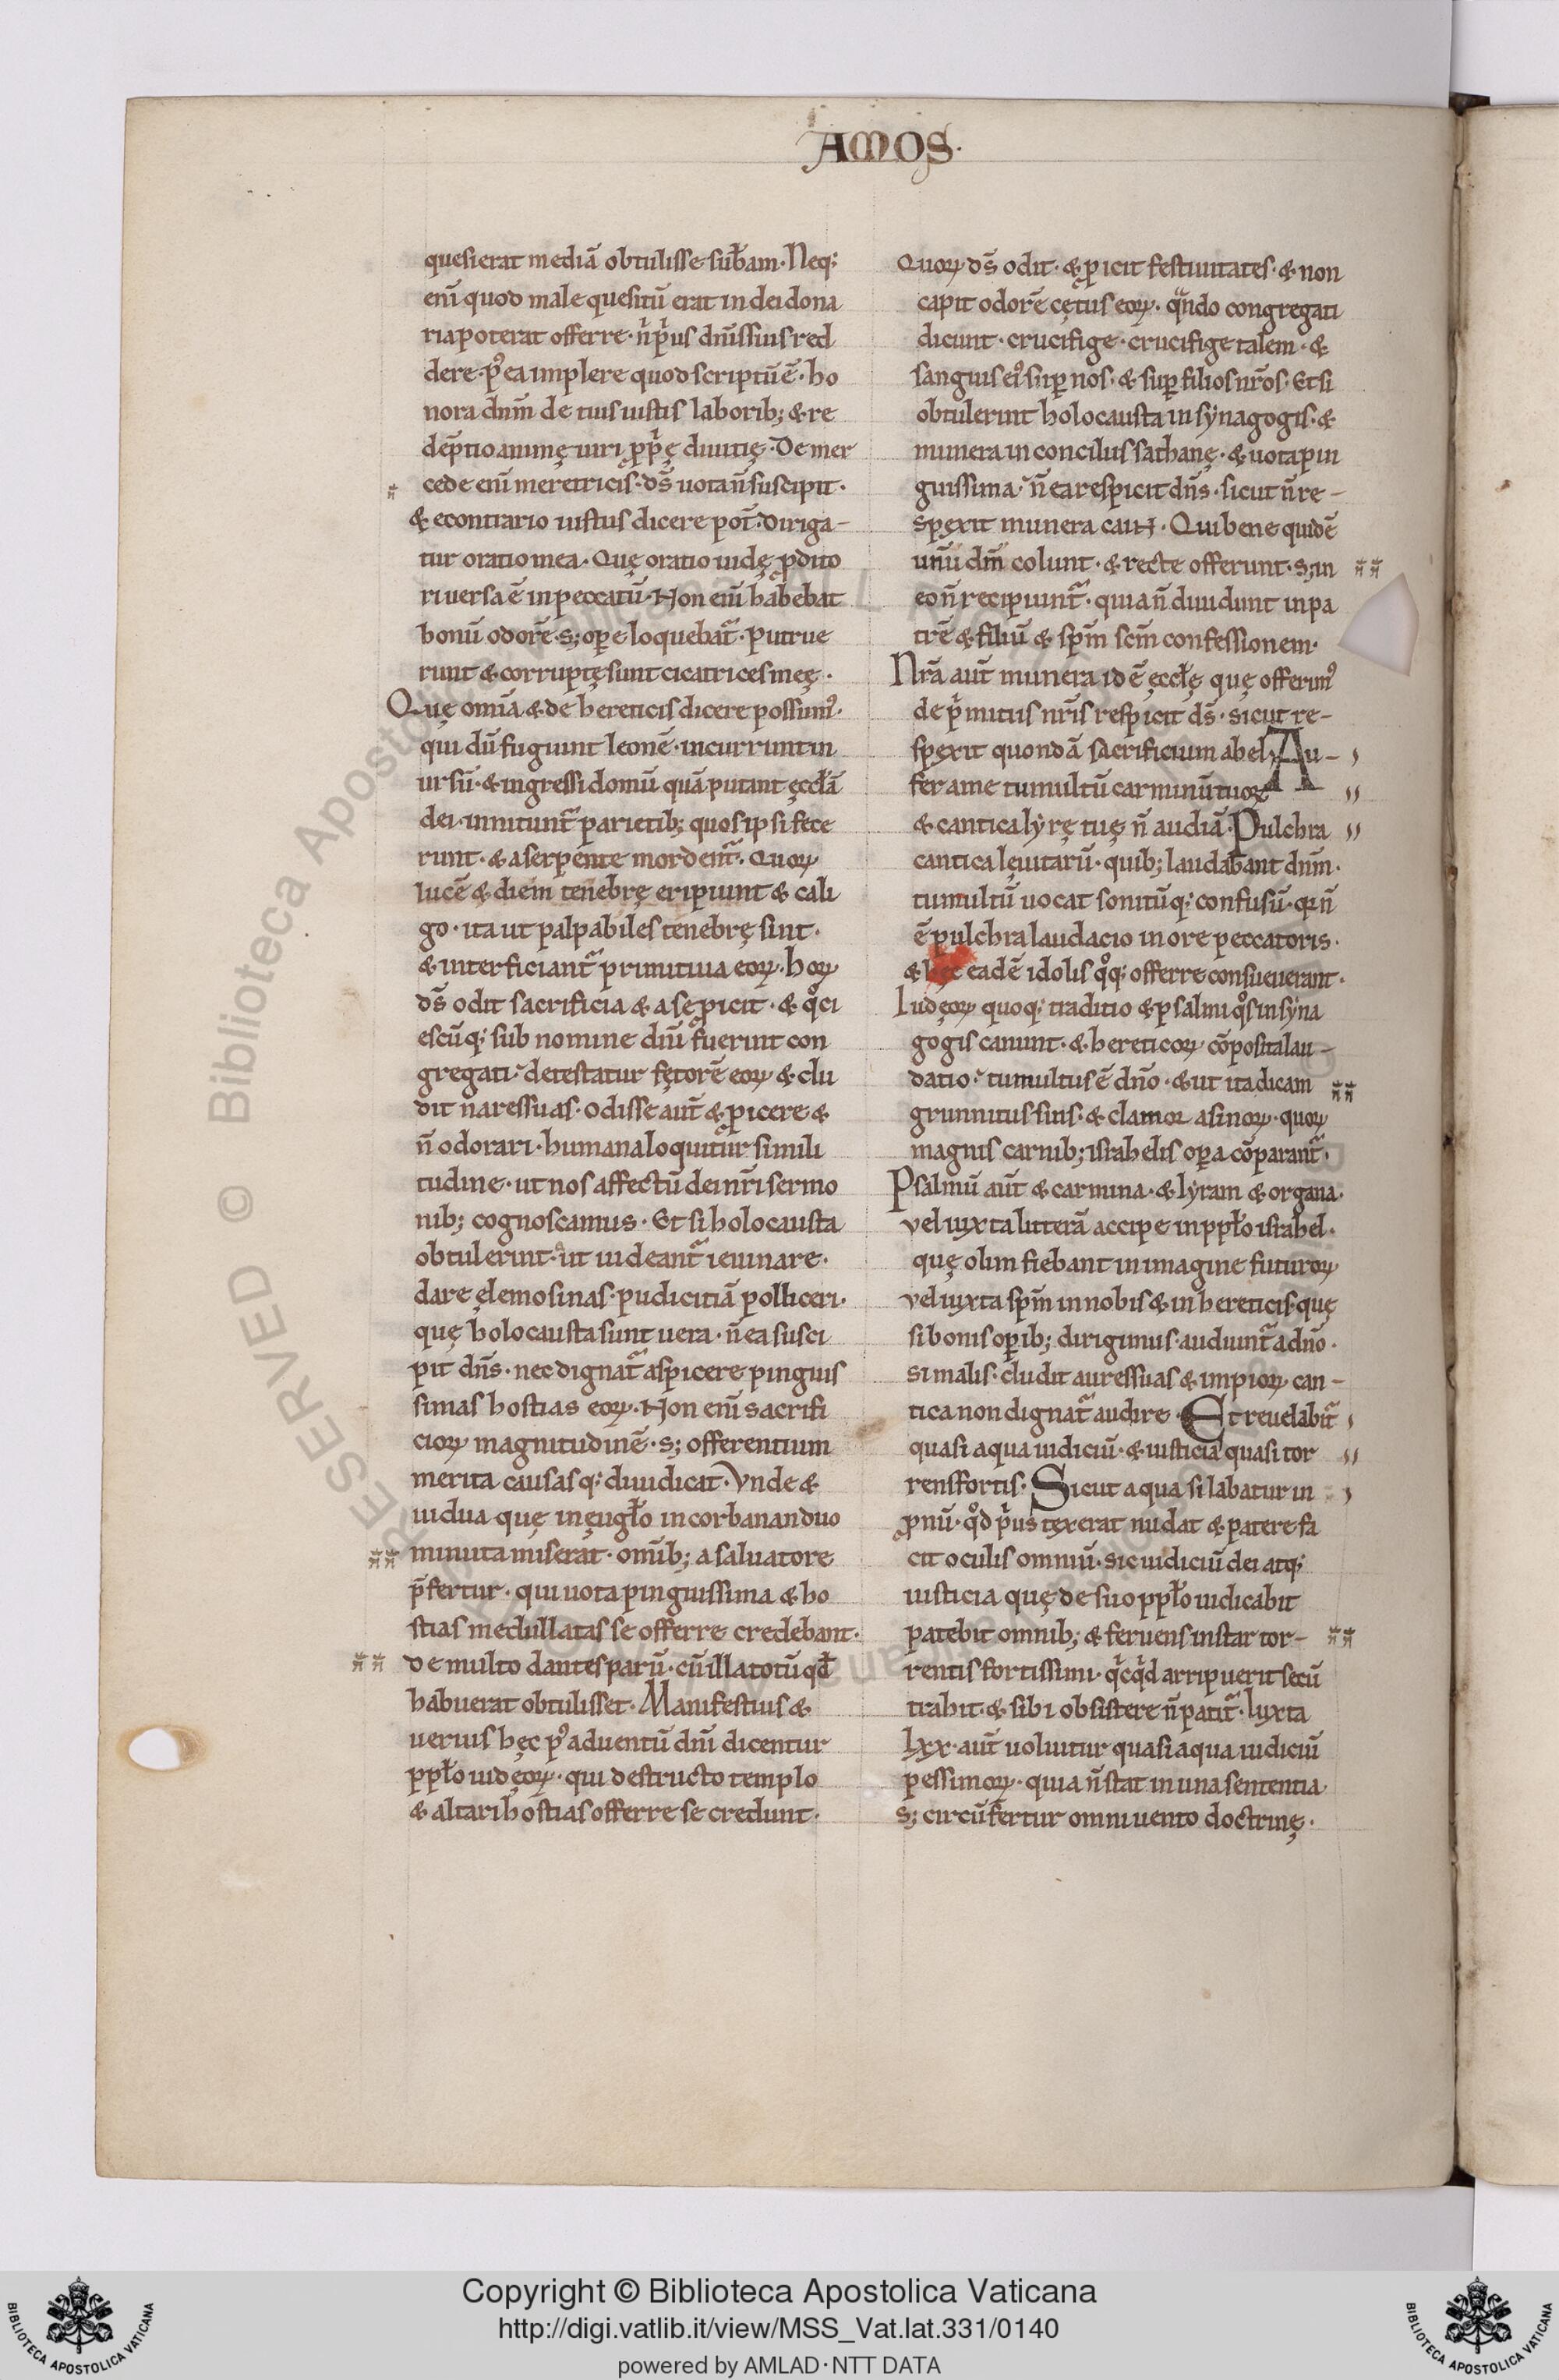 AMOS.
quesierat mediā obtulisse sub̄am. Neq;
enī quod male quesitū erat in dei dona
ria poterat offerre. n̄ p̍us dn̄i ssius red
dere. p̾ ea implere quod scriptū ē. ho
nora dnm̄ de tuis iustis laborib; & re
dēptio animę uiri ꝓp̍ę diuitię. De mer
cede enī meretricis. ds̄ uota n̄ suscipit.
& econtrario iustus dicere pot̄. Diriga-
tur oratio mea. Quę oratio iudę ꝓdito
ri uersa ē in peccatū. Non enī habebat
bonū odorē. s; ope loquebat̄. Putrue
runt & corruptę sunt cicatrices meę.
Quę omīa & de hereticis dicere possum̾.
qui dū fugiunt leonē. incurrunt in
ursū. & ingressi domū quā putant ęccl̄ā
dei. innitunt̄ parietib; quos ipsi fece
runt. & a serpente mordent̄. Quoꝝ
lucē & diem tenebrę eripiunt & cali
go. ita ut palpabiles tenebrę sint.
& interficiant̄ primitiua eoꝝ. hoꝝ
ds̄ odit sacrificia & a se ꝓicit. & q̊ci
escūq; sub nomine diuī fuerint con
gregati. detestatur fętorē eoꝝ & clu
dit nares suas. Odisse aūt & ꝓicere &
n̄ odorari. humana loquitur simili
tudine. ut nos affectū dei nr̄i sermo
nib; cognoscamus. Et si holocausta
obtulerint. ut uideant̄ ieiunare.
dare ęlemosinas. pudicitiā polliceri.
quę holocausta sunt uera. n̄ ea susci
pit dn̄s. nec dignat̄ aspicere pinguis
simas hostias eoꝝ. Non enī sacrifi
cioꝝ magnitudinē. s; offerentium
merita causasq; diiudicat. Vnde &
uidua quę in ęugl̄o in corbanan duo
minuta miserat. omīb; a saluatore
p̄fertur. qui uota pinguissima & ho
stias medullatas se offerre credebant.
de multo dantes parū. cū illa totū qđ
habuerat obtulisset. Manifestius &
uerius hęc p̾ aduentū dn̄i dicentur
ppl̄o iudęoꝝ. qui destructo templo
& altari hostias offerre se credunt.
Quoꝝ ds̄ odit. & ꝓicit festiuitates. & non
capit odorē cętus eoꝝ. qn̄do congregati
dicunt. crucifige. crucifige talem. &
sanguis ei̾ suꝑ nos. & suꝑ filios nr̄os. Et si
obtulerint holocausta in synagogis. &
munera in conciliis sathanę. & uota pin
guissima. n̄ ea respicit dn̄s. sicut n̄ re-
spexit munera cain. Qui bene quidē
unū dm̄ colunt. & recte offerunt. s; in
eo n̄ recipiunt̄. quia n̄ diuidunt in pa
trē & filiū & spm̄ scm̄ confessionem.
Nr̄a aūt munera id ē ęccl̄ę quę offerim̾
de p̍mitiis nr̄is respicit ds̄. sicut re-
spexit quondā sacrificium abel; Au-
fer a me tumultū carminū tuoꝝ
& cantica lyrę tuę n̄ audiā. Pulchra
cantica lęuitarū. quib; laudabant dnm̄.
tumultū uocat sonitūq; confusū. qr n̄
ē pulchra laudacio in ore peccatoris.
& hęc eadē idolis q̊q; offerre consueuerant.
Iudęoꝝ quoq; traditio & psalmi q̊s in syna
gogis canunt. & hereticoꝝ cōposita lau-
datio. tumultus ē dn̄o. & ut ita dicam
grunnitus suis. & clamor asinoꝝ. quoꝝ
magnis carnib; israhelis opa cōparant̄.
Psalmū aūt & carmina. & lyram & organa.
vel iuxta litterā accipe in ppl̄o israhel.
quę olim fiebant in imagine futuroꝝ
vel iuxta spm̄ in nobis & in hereticis. quę
si bonis opib; dirigimus. audiunt̄ a dn̄o.
si malis. cludit aures suas & impioꝝ can-
tica non dignat̄ audire. Et reuelabit̄
quasi aqua iudiciū. & iusticia quasi tor
rens fortis. Sicut aqua si labatur in
ꝓnū. q̊d p̍us texerat nudat & patere fa
cit oculis omniū. sic iudiciū dei atq;
iusticia quę de suo ppl̄o iudicabit
patebit omnib; & feruens instar tor-
rentis fortissimi. q̍cq̍d arripuerit secū
trahit. & sibi obsistere n̄ patit̄. Iuxta
lxx. aūt uoluitur quasi aqua iudiciū
pessimoꝝ. quia n̄ stat in una sententia
s; circūfertur omni uento doctrinę.
RESERVED © Biblioteca Apostolica Vaticana
Copyright © Biblioteca Apostolica Vaticana
http://digi.vatlib.it/view/MSS_Vat.lat.331/0140
powered by AMLAD·NTT DATA
BIBLIOTECA APOSTOLICA VATICANA
BIBLIOTECA APOSTOLICA VATICANA